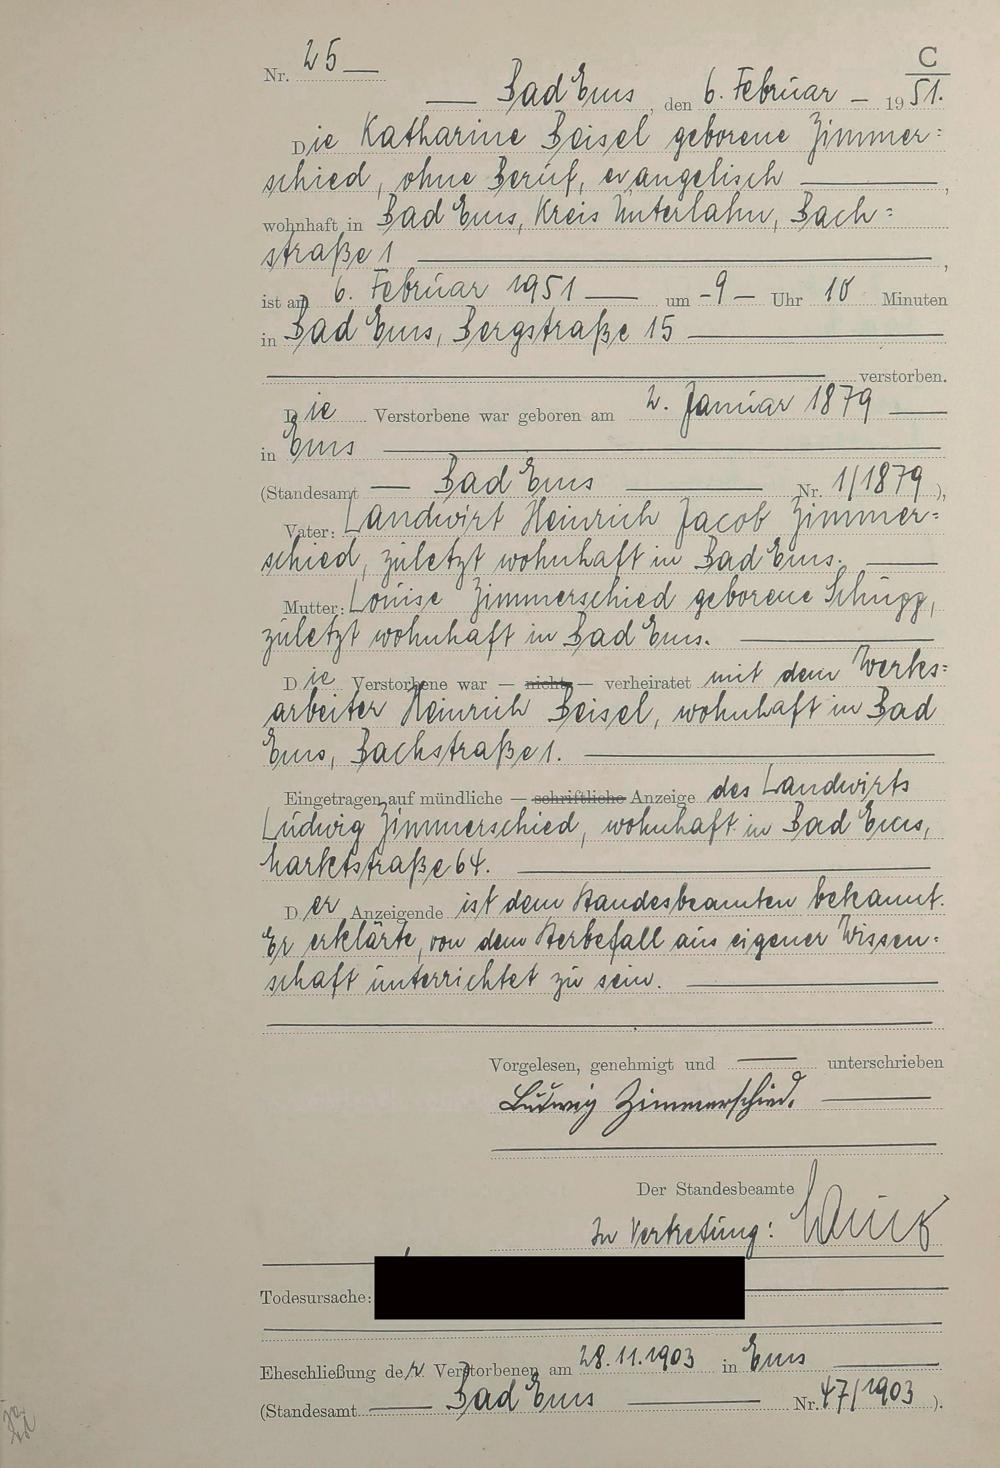 C
Nr. 25
Bad Ems, den 6. Februar 1951.
Die Katharine Beisel geborene Zimmer=
schied, ohne Beruf, evangelisch ,
wohnhaft in Bad Ems, Kreis Unterlahn, Bach=
straße 1 ,
ist am 6. Februar 1951 um 9 Uhr 10 Minuten
in Bad Ems, Bergstraße 15
verstorben.
Die Verstorbene war geboren am 2. Januar 1879
in Ems
(Standesamt Bad Ems Nr. 1/1879),
Vater: Landwirt Heinrich Jacob Zimmer=
schied, zuletzt wohnhaft in Bad Ems.
Mutter: Louise Zimmerschied geborene Schupp,
zuletzt wohnhaft in Bad Ems.
Die Verstorbene war — nicht — verheiratet mit dem Werks=
arbeiter Heinrich Beisel, wohnhaft in Bad
Ems, Bachstraße 1.
Eingetragen auf mündliche — schriftliche Anzeige des Landwirts
Ludwig Zimmerschied, wohnhaft in Bad Ems,
Marktstraße 64.
Der Anzeigende ist dem Standesbeamten bekannt.
Er erklärte, von dem Sterbefall aus eigener Wissen=
schaft unterrichtet zu sein.
Vorgelesen, genehmigt und unterschrieben
Ludwig Zimmerschied.
Der Standesbeamte
In Vertretung:
Todesursache:
Eheschließung der Verstorbenen am 28.11.1903 in Ems
(Standesamt Bad Ems Nr. 47/1903).